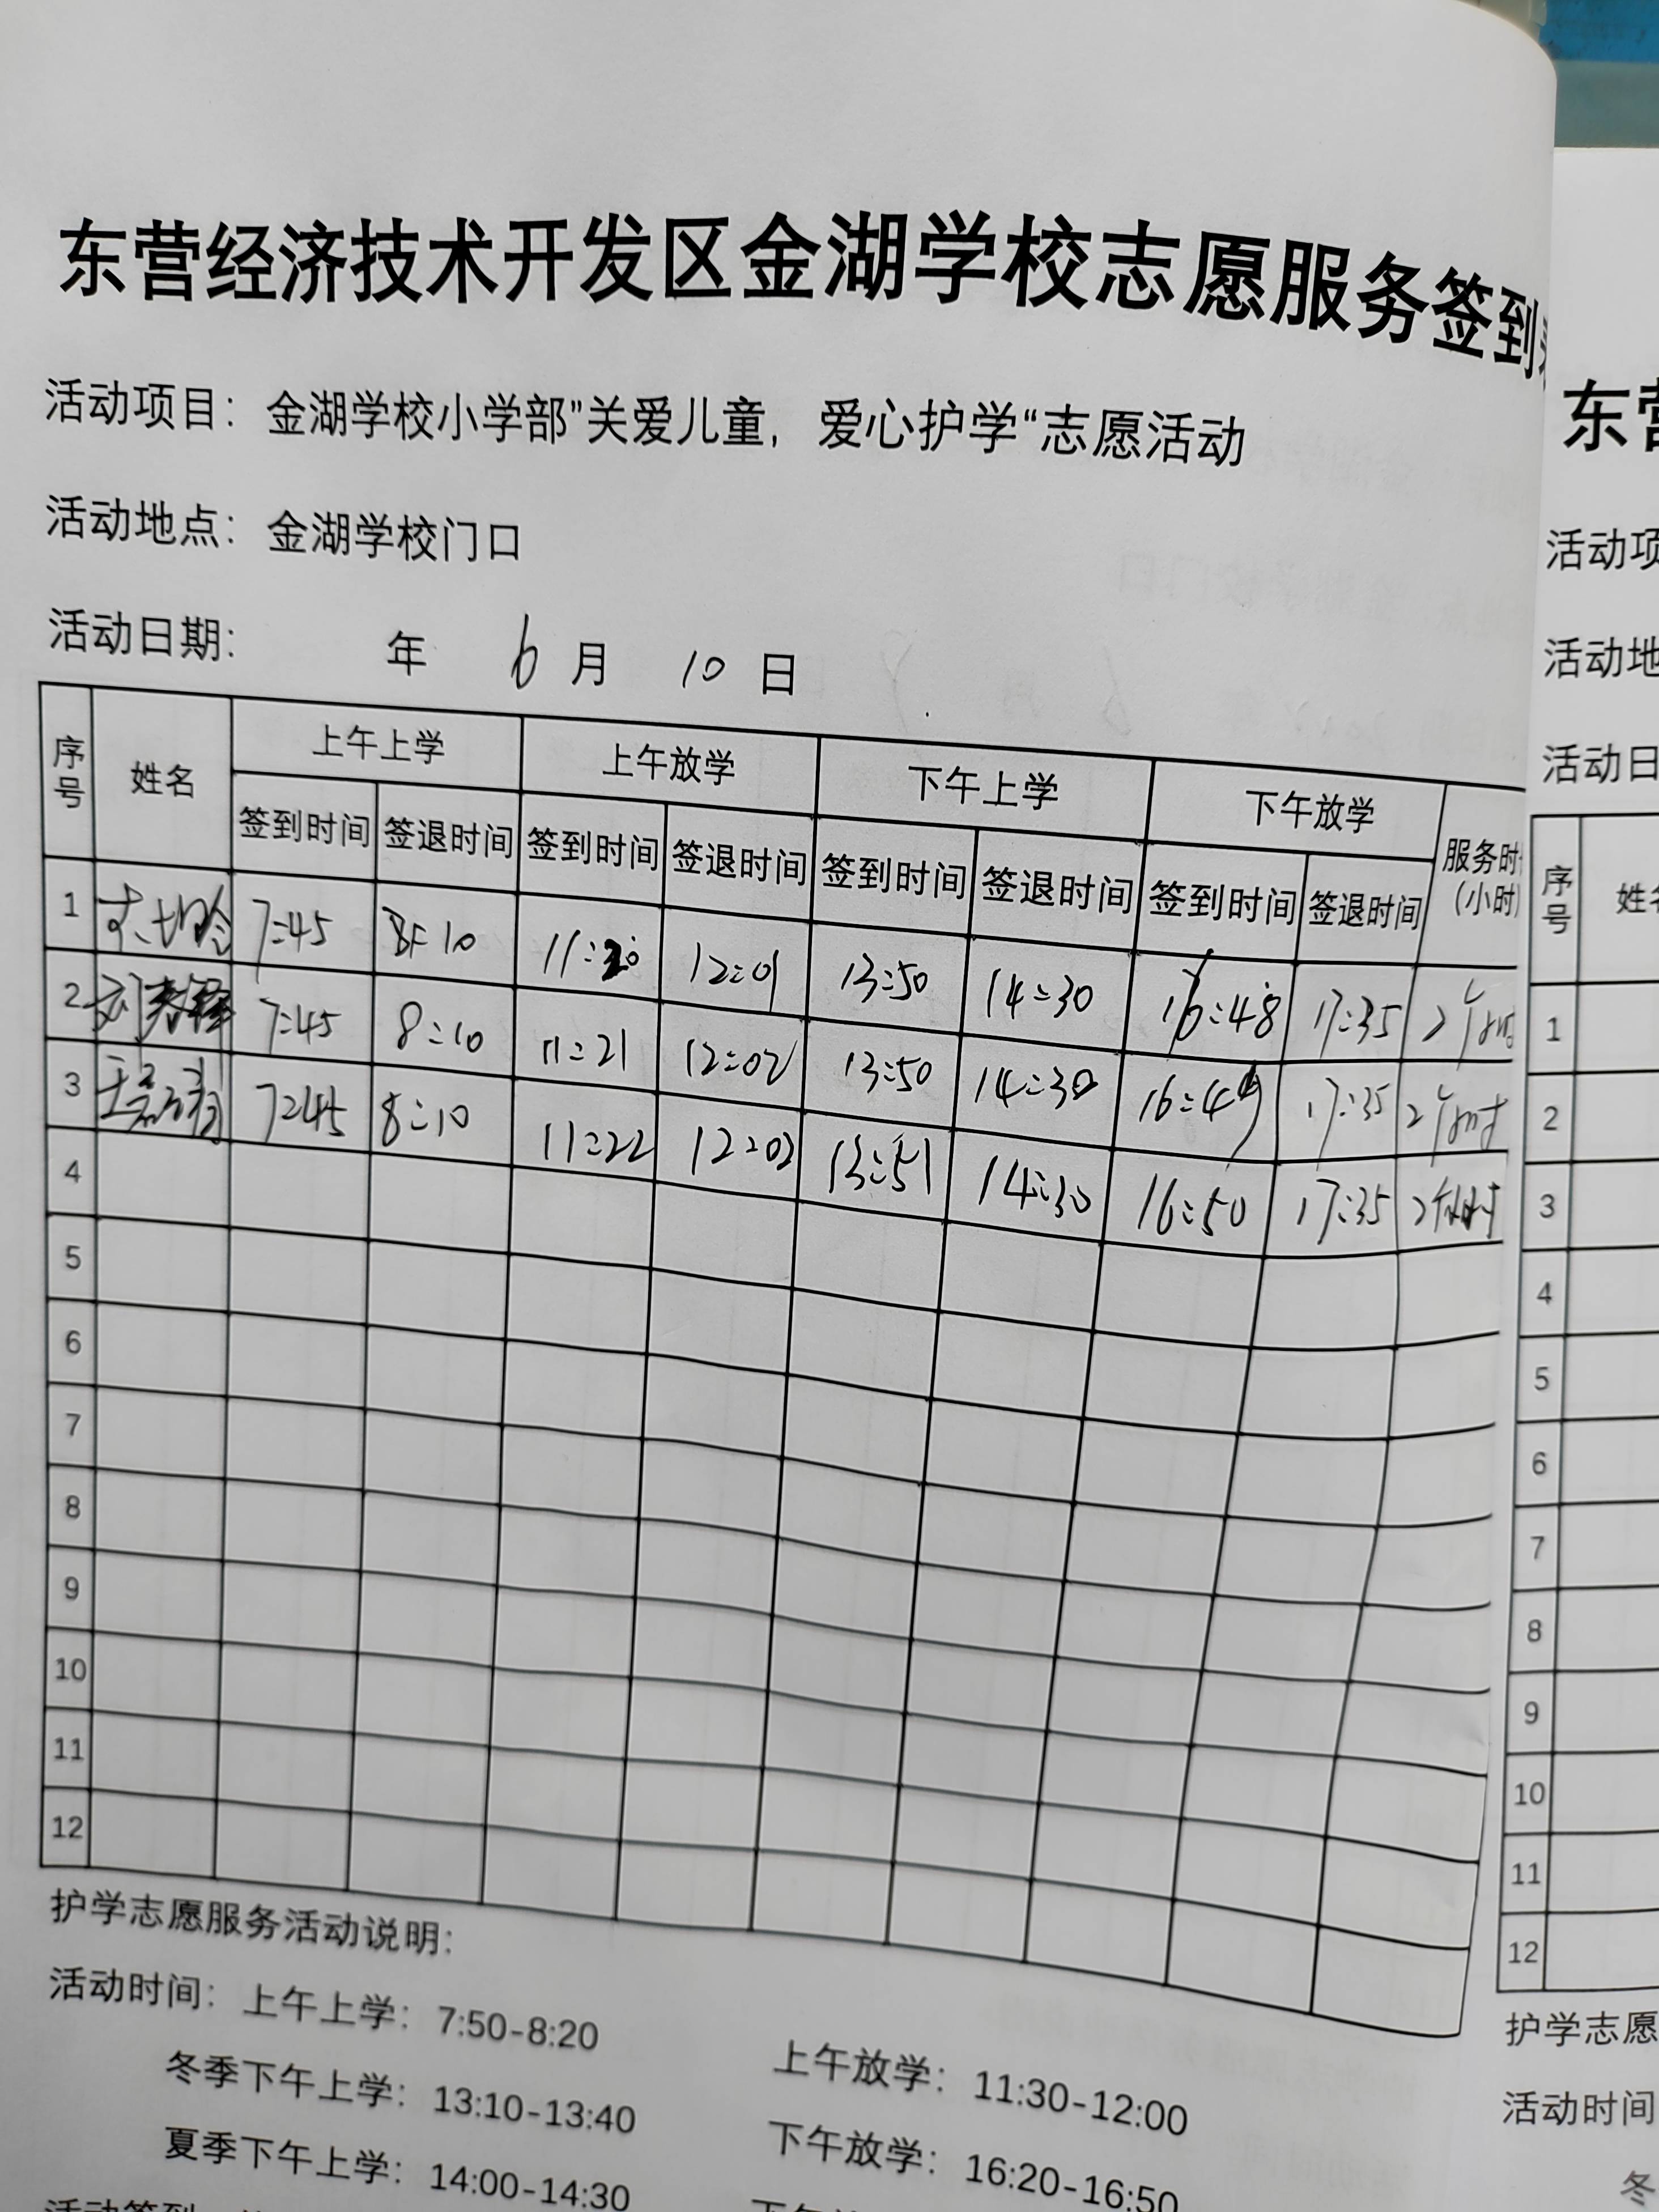 东营经济技术开发区金湖学校志愿服务签到
活动项目：金湖学校小学部”关爱儿童，爱心护学“志愿活动
活动地点：金湖学校门口
活动日期： 年 6 月 10 日
序号 姓名 上午上学 上午放学 下午上学 下午放学 服务时
(小时)
签到时间 签退时间 签到时间 签退时间 签到时间 签退时间 签到时间 签退时间
1 7:45 8:10 11:20 12:01 13:50 14:30 16:48 17:35 2个小时
2 7:45 8:10 11:21 12:02 13:50 14:30 16:49 17:35 2个小时
3 7:45 8:10 11:22 12:02 13:51 14:30 16:50 17:35 2个小时
4
5
6
7
8
9
10
11
12
护学志愿服务活动说明：
活动时间：上午上学：7:50-8:20 上午放学：11:30-12:00
冬季下午上学：13:10-13:40 下午放学：16:20-16:50
夏季下午上学：14:00-14:30
活动签到
东营
活动项
活动地
活动日
序号 姓名
1
2
3
4
5
6
7
8
9
10
11
12
护学志愿
活动时间
冬